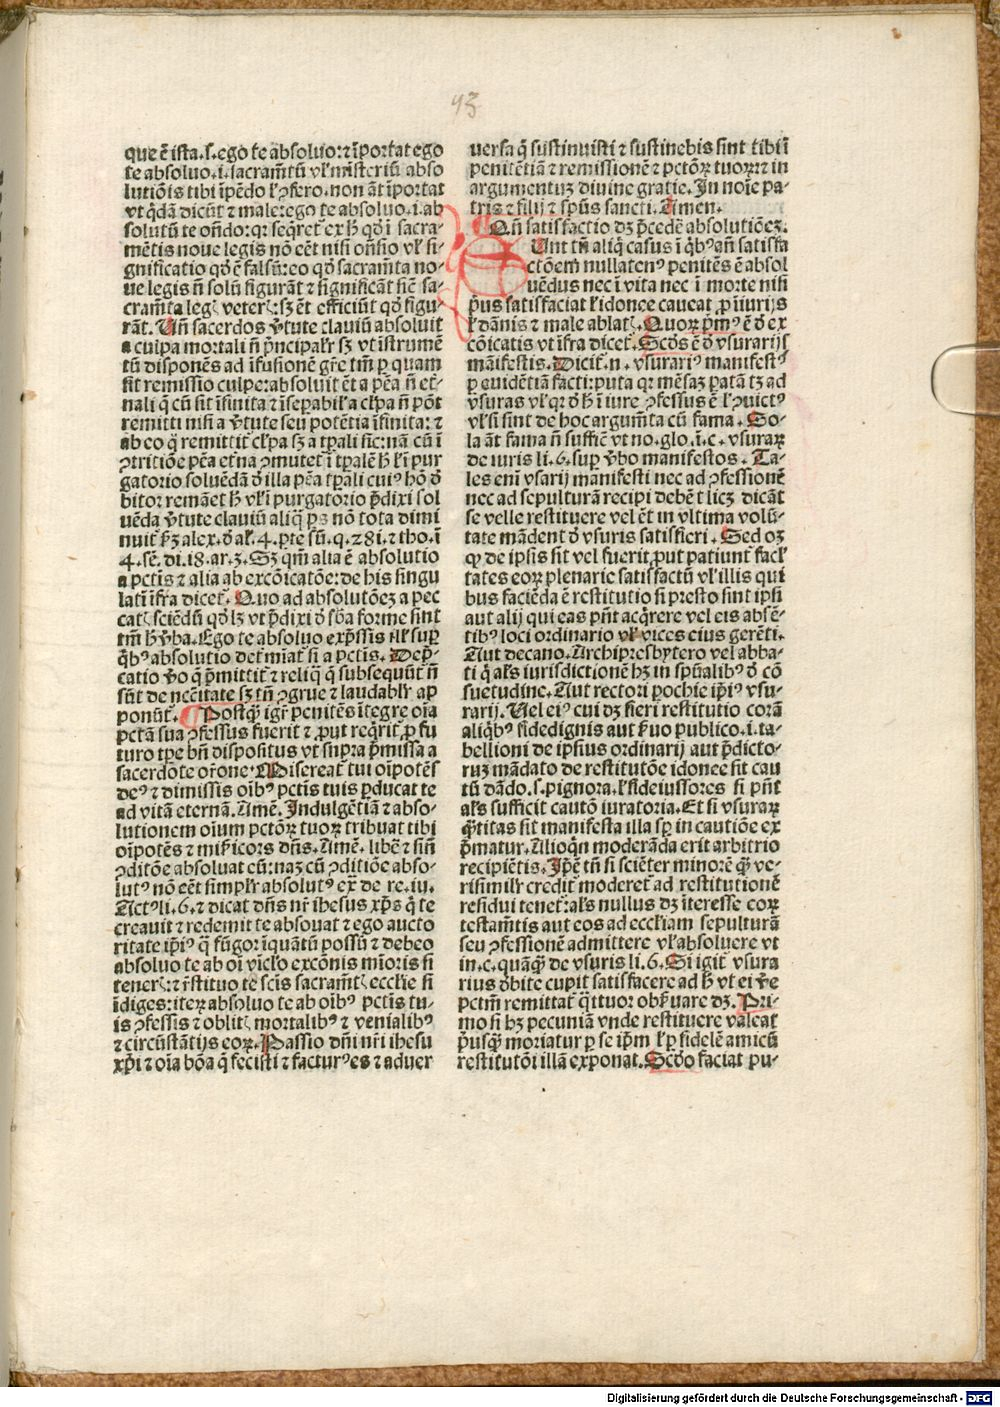 13
que ē ista.s.ego te absoluo:⁊ īportat ego
te absoluo.i.sacram̄tū vl̄ misteriū abso
lutiōis tibi īpēdo l̄ ꝯfero.non āt īportat
vt q̄dā dicūt ⁊ male:ego te absoluo.i.ab
solutū te on̄do:q: seq̄ret̄ ex h̄ qđ ī sacra⸗
mētis noue legis nō eēt nisi on̄sio vl̄ si⸗
gnificatio qđ ē falsū:eo qđ sacram̄ta no⸗
ue legis n̄ solū figurāt ⁊ significāt sic̄ sa⸗
cram̄ta legꝭ veterꝭ:sꝫ ēt efficiūt qđ figu
rāt. Un̄ sacerdos v̄tute clauiū absoluit
a culpa mortali n̄ p̄ncipalr̄ sꝫ vt īstrumē
tū disponēs ad īfusionē gr̄e tm̄ ꝑ quam
fit remissio culpe:absoluit ēt a pēa n̄ et̄⸗
nali q̄ cū sit īfinita ⁊ īseꝑabil̄ a cl̄pa n̄ pōt
remitti nisi a v̄tute seu potētia īfinita: ⁊
ab eo q̄ remittit cl̄pa sꝫ a tꝑali sic: nā cū ī
ꝯtritiōe pēa et̄na ꝯmutet̄ ī tꝑalē h̄ l̄ ī pur
gatorio soluēdā đ illa pēa tꝑali cui⁹ hō đ
bitor remāet h̄ vl̄ ī purgatorio p̄dixi sol
uēda v̄tute clauiū aliq̄ ps nō tota dimi
nuit̄ ꝑꝫ alex. đ al̄.4.ꝑte sū.q.⁊ 8i.⁊ tho.ī
4.sē.di.i8.ar.3. Sꝫ qm̄ alia ē absolutio
a pctīs ⁊ alia ab excōicatōe: de his singu
latī īfra dicet̄. Quo ad absolutōeꝫ a pec
catꝭ sciēdū qđ lꝫ vt p̄dixi đ sb̄a forme sint
tm̄ h̄ v̄ba. Ego te absoluo exp̄ssis il̄l suꝑ
q̄b⁹ absolutio det̄mīat̄ s. a pctīs. Dep̄⸗
catio v̄o q̄ p̄mittit̄ ⁊ reliq̄ q̄ subsequūt n̄
sūt de nēcitate sꝫ tn̄ ꝯgrue ⁊ laudabl̄r ap
ponūt. Postq̄ igr̄ penitēs ītegre oīa
pctā sua ꝯfessus fuerit ⁊ ꝓut req̄rit ꝓ fu
turo tꝑe bn̄ dispositus vt supra p̄missa a
sacerdote or̄one. Misereat̄ tui oīpotēs
de⁹ ⁊ dimissis oīb⁹ pctīs tuis ꝑducat te
ad vitā eternā. Amē. Indulgētiā ⁊ abso⸗
lutionem oīum pctōꝝ tuoꝝ tribuat tibi
oīpotēs ⁊ mīsicors dn̄s. Amē. libē ⁊ sin̄
ꝯditōe absoluat eū: naꝫ cū ꝯditiōe abso⸗
lut⁹ nō eēt simpl̄r absolut⁹ ex̄ de re.iu.
Act⁹ li.6.⁊ dicat dn̄s nr̄ ihesus xp̄s q̄ te
creauit ⁊ redemit te absouat ⁊ ego aucto
ritate ip̄i⁹ q̄ fūgor īquātū possū ⁊ debeo
absoluo te ab oī vīclo excōnis mīoris si
tenerꝭ: ⁊ r̄stituo te scīs sacram̄tꝭ ecclīe si
īdiges: iteꝝ absoluo te ab oīb⁹ pctīs tu⸗
is ꝯfessis ⁊ oblitꝭ mortalib⁹ ⁊ venialib⁹
⁊ circūstātijs eoꝝ. Passio dn̄i nr̄i ihesu
xp̄i ⁊ oīa bōa q̄ fecisti ⁊ factur⁹ es ⁊ aduer
uersa q̄ sustinuisti ⁊ sustinebis sint tibi ī
penitētiā ⁊ remissionē ⁊ pctōꝝ tuoꝝ ⁊ in
argumentuꝫ diuine gratie. In noīe pa⸗
tris ⁊ filij ⁊ spūs sancti. Amen.
Qn̄ satisfactio dꝫ p̄cedē absolutiōeꝫ.
Sunt tn̄ aliq̄ casus ī q̄b⁹ an̄ satisfa
ctōem nullaten⁹ penitēs ē absol
uēdus nec ī vita nec ī morte nisi
p̄us satisfaciat l̄ idonee caueat ꝓ īiurijs
l̄ dānis ⁊ male ablatꝭ. Quoꝝ p̄m⁹ ē đ ex
cōicatis vt īfra dicet̄. Scđs ē đ vsurarijs
māifestis. Dicit̄.n.vsurari⁹ manifest⁹
ꝑ euidētiā facti: puta q: mēsaꝫ patā tꝫ ad
vsuras vl̄ q: đ h̄ ī iure ꝯfessus ē l̄ ꝯuict⁹
vl̄ si sint de hoc argum̄ta cū fama. So⸗
la āt fama n̄ suffic̄ vt no.glo.ī.c.vsuraꝝ
de iuris li.6.suꝑ v̄bo manifestos. Ta⸗
les enī vsurij manifesti nec ad ꝯfessionē
nec ad sepulturā recipi debēt licꝫ dicāt
se velle restituere vel ēt in vltima volū⸗
tate mādent đ vsuris satisfieri. Sed oꝫ
ꝙ de ipsis sit vel fuerit ꝓut patiunt̄ facl̄
tates eoꝝ plenarie satisfactū vl̄ illis qui
bus faciēda ē restitutio si presto sint ipsi
aut alij qui eas pn̄t acq̄rere vel eis absē⸗
tib⁹ loci ordinario vl̄ vices eius gerēti.
Aut decano. Archipresbytero vel abba⸗
ti q̄ al̄s iurisdictionē hꝫ in spūalib⁹ đ cō
suetudine. Aut rectori pochie ip̄i⁹ vsu⸗
rarij. Uel ei⁹ cui dꝫ fieri restitutio corā
aliq̄b⁹ fidedignis aut s̄uo publico.i.ta⸗
bellioni de ipsius ordinarij aut p̄dicto⸗
ruꝫ mādato de restitutōe idonee sit cau
tū dādo.s.pignora.l̄ fideiussores si pn̄t
al̄s sufficit cautō iuratoria. Et si vsuraꝝ
q̄titas sit manifesta illa sꝑ in cautiōe ex
p̄matur. Alioqn̄ moderāda erit arbitrio
recipiētis. Ip̄e tn̄ si sciēter minorē q̄ ve⸗
risimilr̄ credit̄ moderet̄ ad restitutionē
residui tenet̄: al̄s nullus dꝫ īteresse eoꝝ
testam̄tis aut eos ad ecclīam sepulturā
seu ꝯfessionē admittere vl̄ absoluere vt
in.c.quāq̄ de vsuris li.6. Si igit̄ vsura
rius đbite cupit satisfacere ad h̄ vt ei v̄e
pctm̄ remittat̄ q̄ttuor obs̄uare dꝫ. Pri⸗
mo si hꝫ pecuniā vnde restituere valeat
p̄usq̄ moriatur ꝑ se ip̄m l̄ ꝑ fidelē amicū
restitutōi illā exponat. Scđo faciat pu⸗
Digitalisierung gefördert durch die Deutsche Forschungsgemeinschaft - DFG